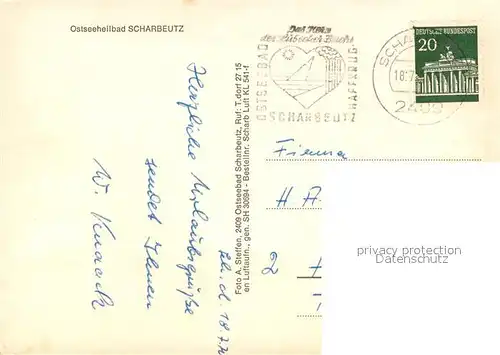 Ostseeheilbad SCHARBEUTZ
Das Herz
der Lübecker Bucht
OSTSEEBAD
HAFFKRUG
SCHARBEUTZ
SCHA
18.7.
2409
DEUTSCHE BUNDESPOST
20
Herzliche Urlaubsgrüße
sendet Ihnen
W. Knaack
Sch. d. 18.7.7
Foto A. Steffen, 2409 Ostseebad Scharbeutz, Ruf: T.dorf 27 15
en Luftaufn., gen. SH 30694 - Bestellnr. Scharb Luft KL 541-f
Firma
H A
2
privacy protection
AnsichtskartenVersand.com